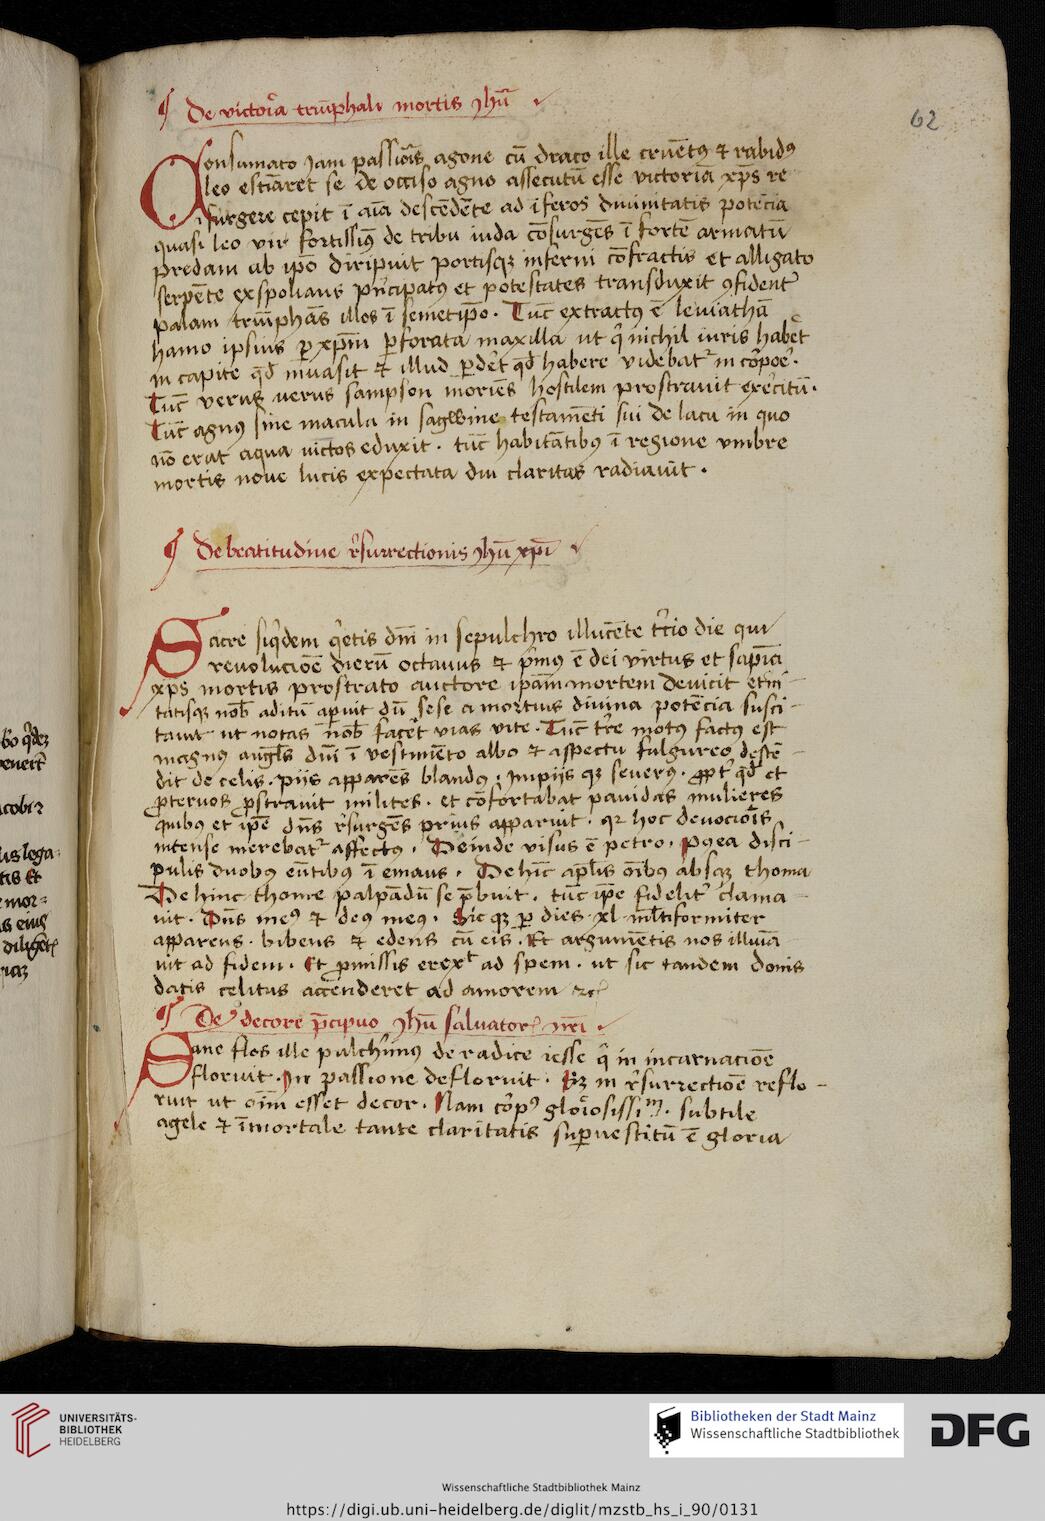 ¶ De victoria triūphali mortis yhū
62
Consumato jam passiōis agone cū draco ille cruētꝰ ⁊ rabidꝰ
leo estīaret se de occiso agno assecutū esse victoriā xp̄s re
surgere cepit ī aīa descēdēte ad īferos diuinitatis potēcia
quasi leo vir fortissīꝰ de tribu iuda cōsurgēs ī fortē armatū
predam ab ip̄o diripuit portisqꝫ inferni cōfractis et alligato
serpēte exspolians pͥncipatꝰ et potestates transduxit ꝯfident̄
palam triūphās illos ī semetip̄o. Tūc extractꝰ ē leuiathā
hamo ipsius ꝑ xp̄m ꝑforata maxilla ut qͥ nichil iuris habēt
in capite qd̄ inuasit ⁊ illud ꝑdet qd̄ habere videbat᷑ in cōrꝑoe.
Tūc verus uerus sampson moriēs hostilem prostrauit exercitū.
Tūc agnꝰ sine macula in sagwine testamēti sui de lacu in quo
nō erat aqua victos eduxit. tūc habitātibꝰ ī regione vmbre
mortis noue lucis expectata diu claritas radiauit.
¶ De beatitudine rͤsurrectionis yhū xp̄i
Sacre siqͥdem qͥetis dn̄i in sepulchro illucēte tͬcio die qui
reuolucioē dierū octauus ⁊ pͥmꝰ ē dei virtus et sapīa
xp̄s mortis prostrato auctore ip̄am mortem deuicit etni-
tatisqꝫ nob̄ aditū aꝑuit dū sese a mortuis diuina potēcia susci-
tauit ut notas nob̄ facēt vias vite. Tūc tͬre motꝰ factꝰ est
magnꝰ angl̄s dn̄i ī vestimēto albo ⁊ aspectu fulgureo descē-
dit de celis. piis apparēs blandꝰ. Impiis qꝫ seuerꝰ. ꝓpt᷑ qd̄ et
ꝓteruos pͬstrauit milites. et cōfortabat pauidas mulieres
quibꝰ et ip̄e dn̄s rͤsurgēs prius apparuit. qꝛ hoc deuociōīs
intense merebat᷑ affectꝰ. Deinde visus ē petro. Pꝰea disci-
pulis duobꝰ eūtibꝰ ī emaus. Dehīc apl̄is oībꝰ absqꝫ thoma
Dehinc thome palpādū se p̄buit. tūc ip̄e fidelit᷑ clama-
uit. Dn̄s meꝰ ⁊ deꝰ meꝰ. Sic qꝫ ꝑ dies xl ml̄tiformiter
apparens. bibens ⁊ edens cū eis. Et argumētis nos illuīa-
uit ad fidem. Et ꝓmissis erexͭ ad spem. ut sic tandem donis
datis celitus accenderet ad amorem ⁊c̄
¶ De decore p̄cipuo yhū saluatorꝭ nr̄i
Sane flos ille pulchͥrimꝰ de radice iesse qͥ in incarnacioē
floruit. In passione defloruit. Sꝫ in rͤsurrectioē reflo-
ruit ut oīm esset decor. Nam cōrpꝰ gloͥosissiᵐ. subtile
agele ⁊ īmortale tante claritatis suꝑuestitū ē gloria
UNIVERSITÄTS-
BIBLIOTHEK
HEIDELBERG
Bibliotheken der Stadt Mainz
Wissenschaftliche Stadtbibliothek
DFG
Wissenschaftliche Stadtbibliothek Mainz
https://digi.ub.uni-heidelberg.de/diglit/mzstb_hs_i_90/0131